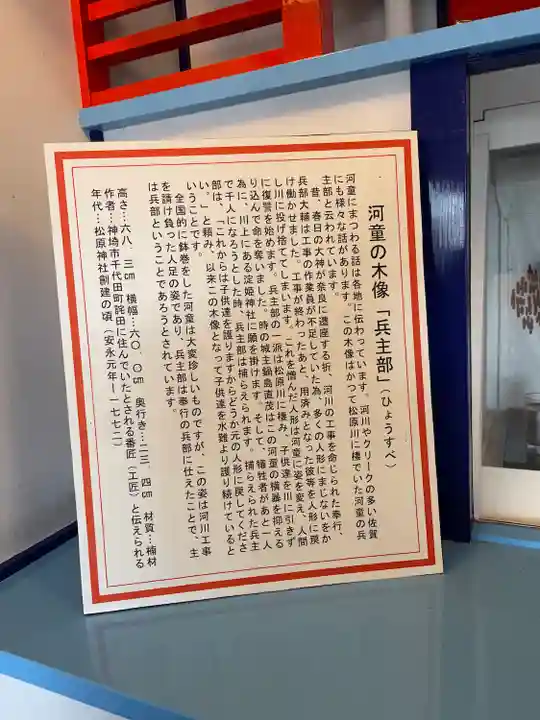 河童の木像「兵主部」（ひょうすべ）
河童にまつわる話は各地に伝わっています。河川やクリークの多い佐賀
にも様々な話があります。この木像はかつて松原川に棲でいた河童の兵
主部と云われています。
昔、春日の大神が奈良に遷座する折、河川の工事を命じられた奉行、
兵部大輔は工事の作業員が不足していた為、多くの人形にまじないをか
け働かせました。工事が終わったあと、用済みとなった彼等を人形に戻
し川に投げ捨ててしまいます。これを憎んだ人形は河童に姿を変え、人間
に復讐を始めます。兵主部の一派は松原川に棲み、子供達を川に引きず
り込んで命を奪いました。時の城主鍋島直茂はこの河童の横暴を抑える
為に、川上にある淀姫神社に願を掛けます。そして、犠牲者があと一人
で千人になろうとした時、兵主部は捕らえられます。捕らえられた兵主
部は、「これからは子供達を護りますからどうか元の人形に戻してくださ
い。」と頼み、以来この木像となって子供達を水難より護り続けていると
いうことです。
全国的に鉢巻をした河童は大変珍しいものですが、この姿は河川工事
を請け負った人足の姿であり、兵主部は奉行の兵部に仕えたことで、主
は兵部ということであろうとされています。
高さ…六八．三㎝ 横幅…六〇．〇㎝ 奥行き…二三．四㎝ 材質…楠材
作者…神埼市千代田町詫田に住んでいたとされる番匠（工匠）と伝えられる
年代…松原神社創建の頃（安永元年－一七七二）